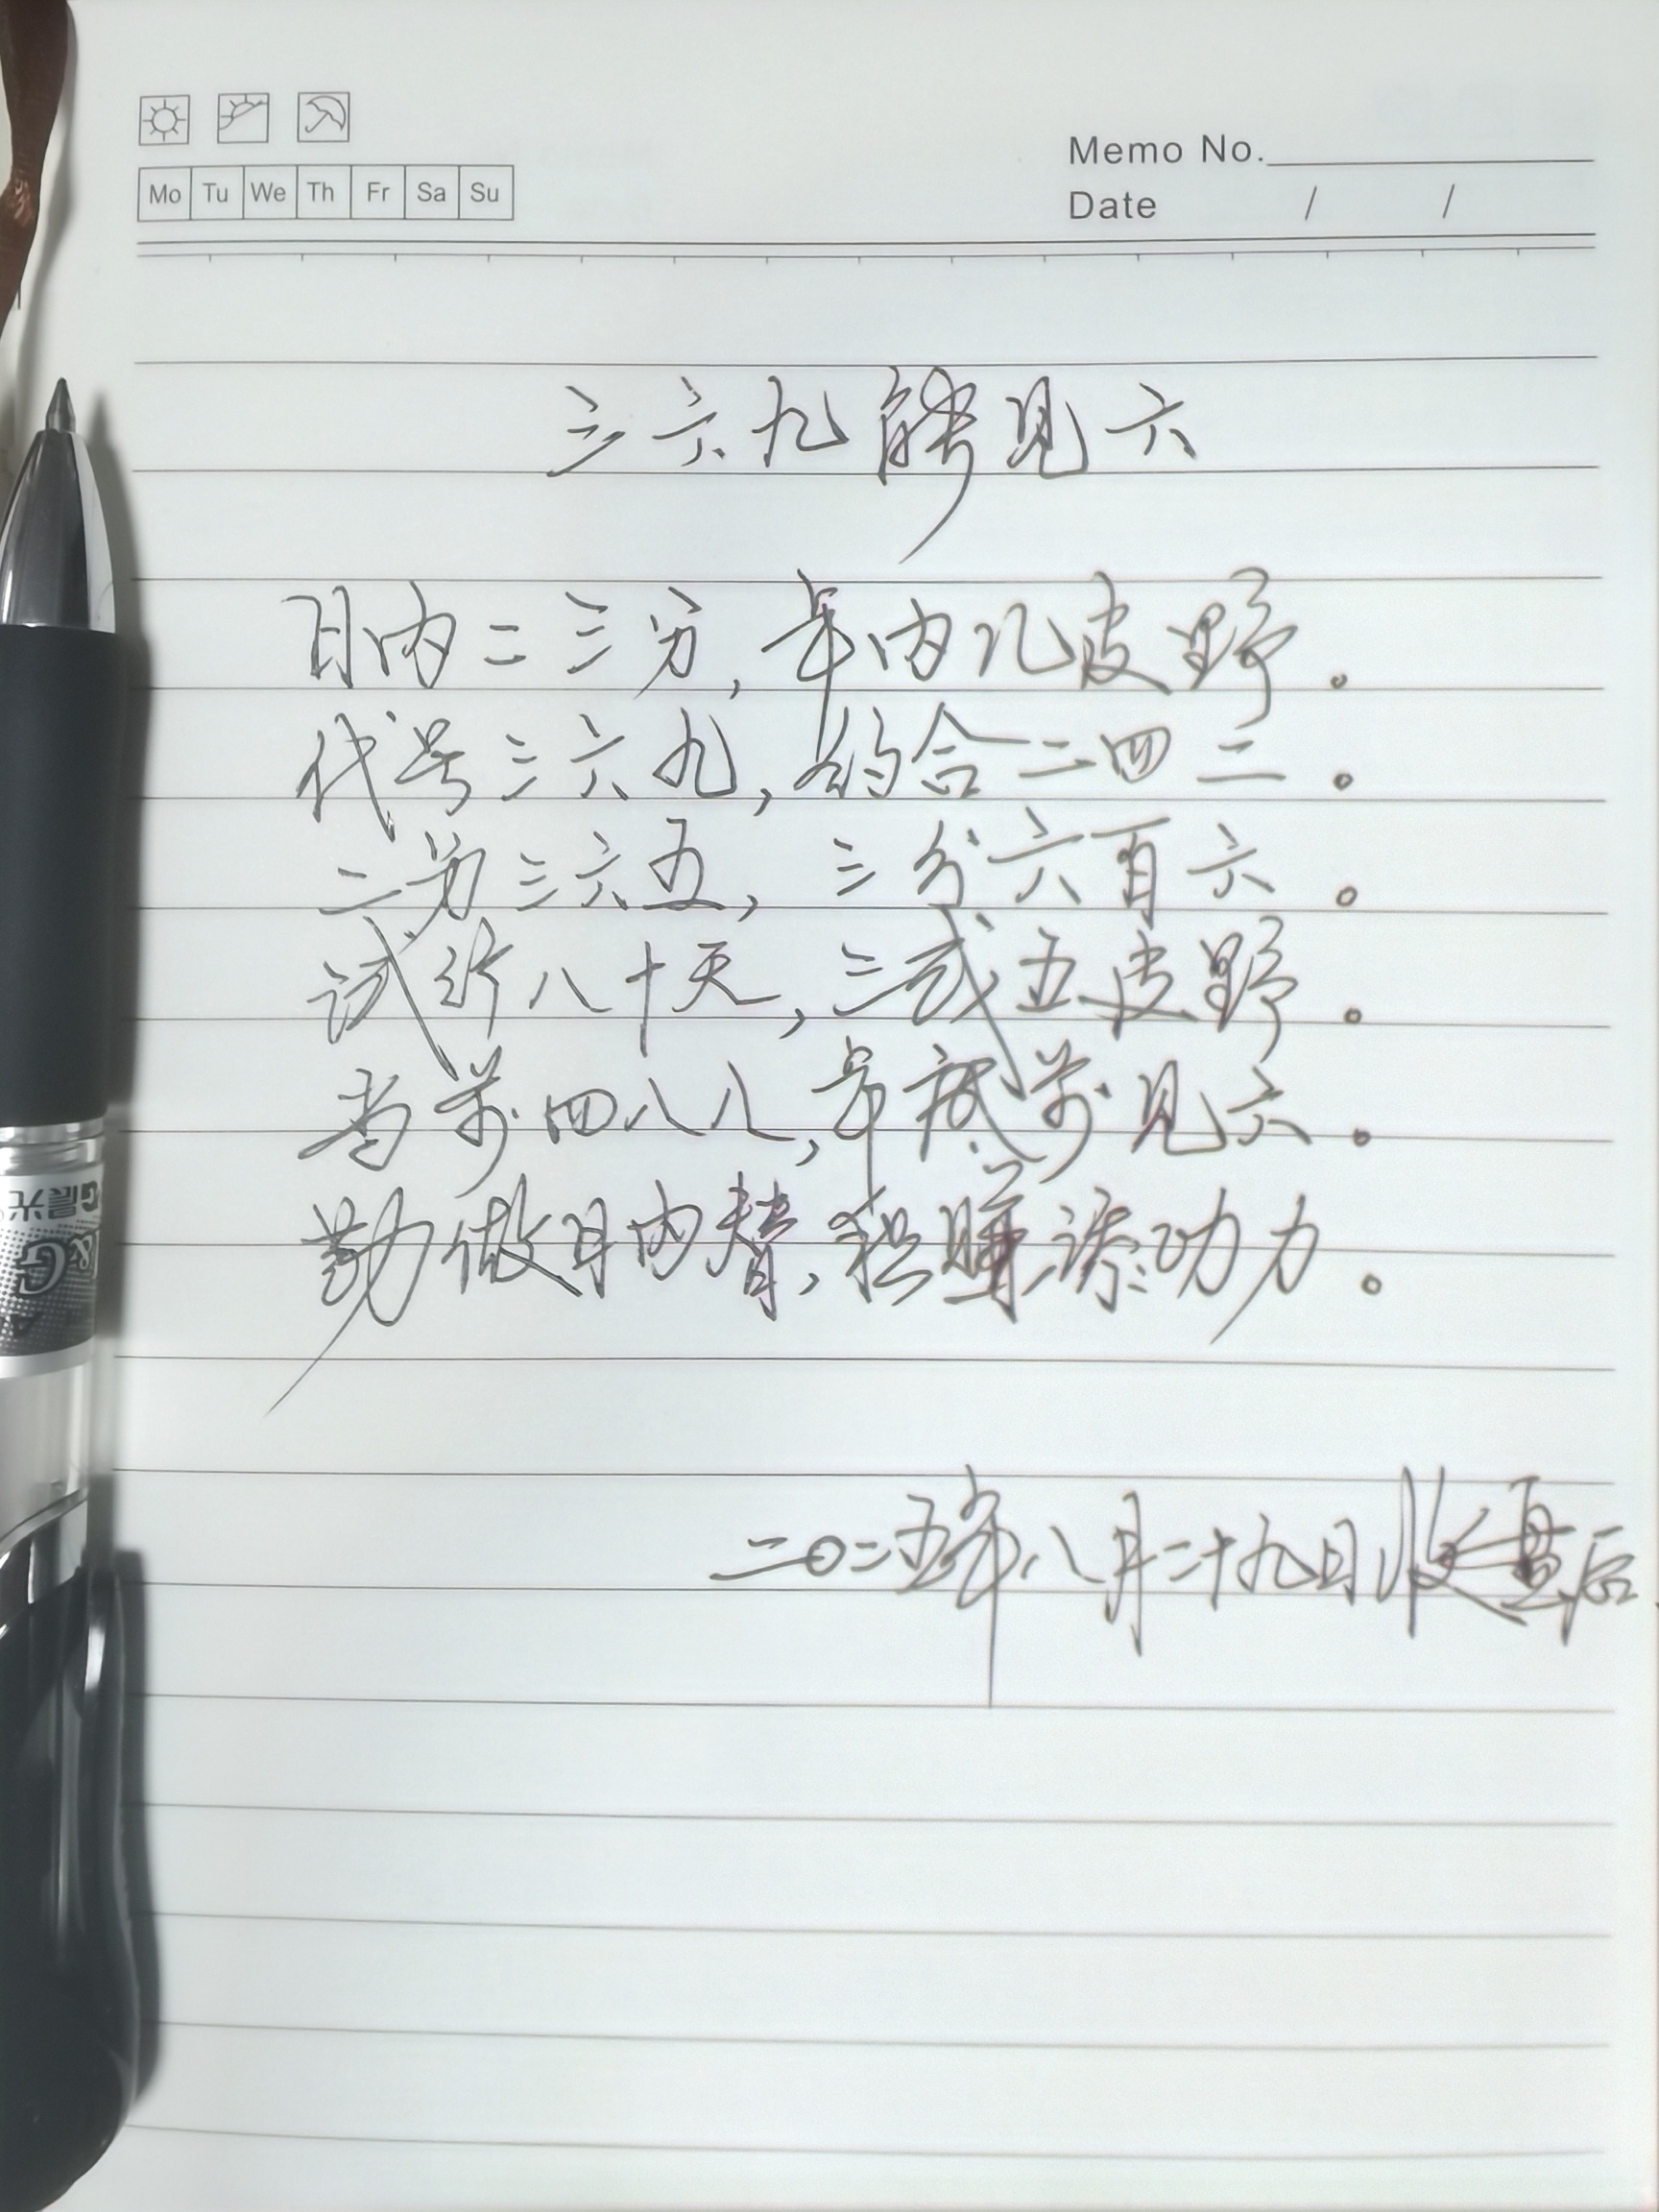 Mo Tu We Th Fr Sa Su
Memo No.
Date / /
三六九能见六
日内二三分,年内几皮野。
代号三六九,约合二四二。
二分三六五,三分六百六。
试行八十天,三或五皮野。
当前四八八,年底前见六。
勤做日内替,积睡添功力。
二〇二五年八月二十九日收盘后
晨光
M&G